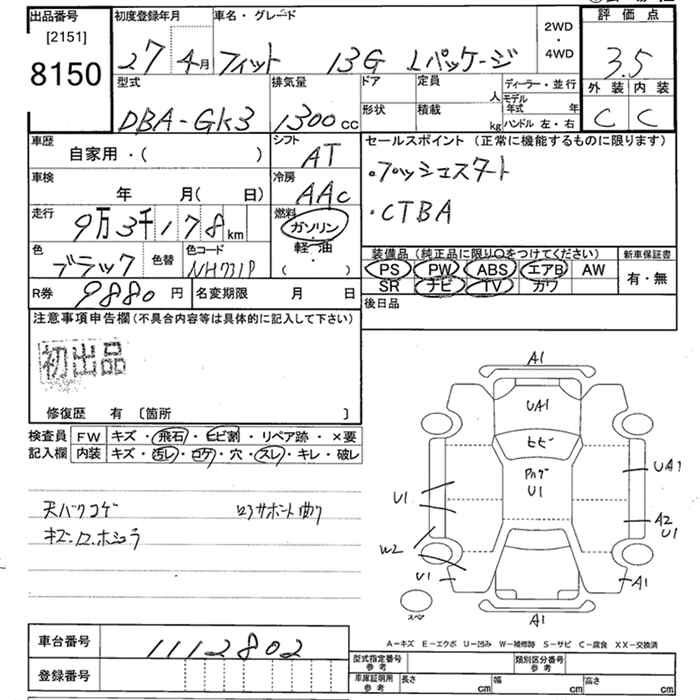 出品番号
[2151]
8150
初度登録年月
27 4月
車名・グレード
フィット 13G Lパッケージ
2WD
・
4WD
評価点
3.5
外装 内装
C C
型式
DBA-GK3
排気量
1300cc
ドア
形状
定員
人
積載
kg
ディーラー・並行
モデル年式 年
ハンドル 左・右
車歴
自家用・( )
シフト
AT
車検
年 月( 日)
冷房
AAC
走行
9万3千178km
燃料
ガソリン
軽・油
( )
色
ブラック
色替
色コード
NH731P
R券
9880円
名変期限 月 日
セールスポイント (正常に機能するものに限ります)
・プッシュスタート
・CTBA
装備品 (純正品に限り○をつけてください)
PS PW ABS エアB AW
SR ナビ TV カワ
新車保証書
有・無
後日品
注意事項申告欄(不具合内容等は具体的に記入して下さい)
初出品
修復歴 有 〔箇所 〕
検査員 FW キズ・飛石・ヒビ割・リペア跡・×要
記入欄 内装 キズ・汚レ・コゲ・穴・スレ・キレ・破レ
天バクコゲ
ロアサポート曲り
A1
UA1
ヒビ
U1
UA1
U1
A2
U1
W2
U1
A1
A1
スペア
A-キズ E-エクボ U-凹み W-補修跡 S-サビ C-腐食 XX-交換済
車台番号
1112802
登録番号
型式指定番号
参考
類別区分番号
参考
車庫証明用
参考
長さ cm
幅 cm
高さ cm